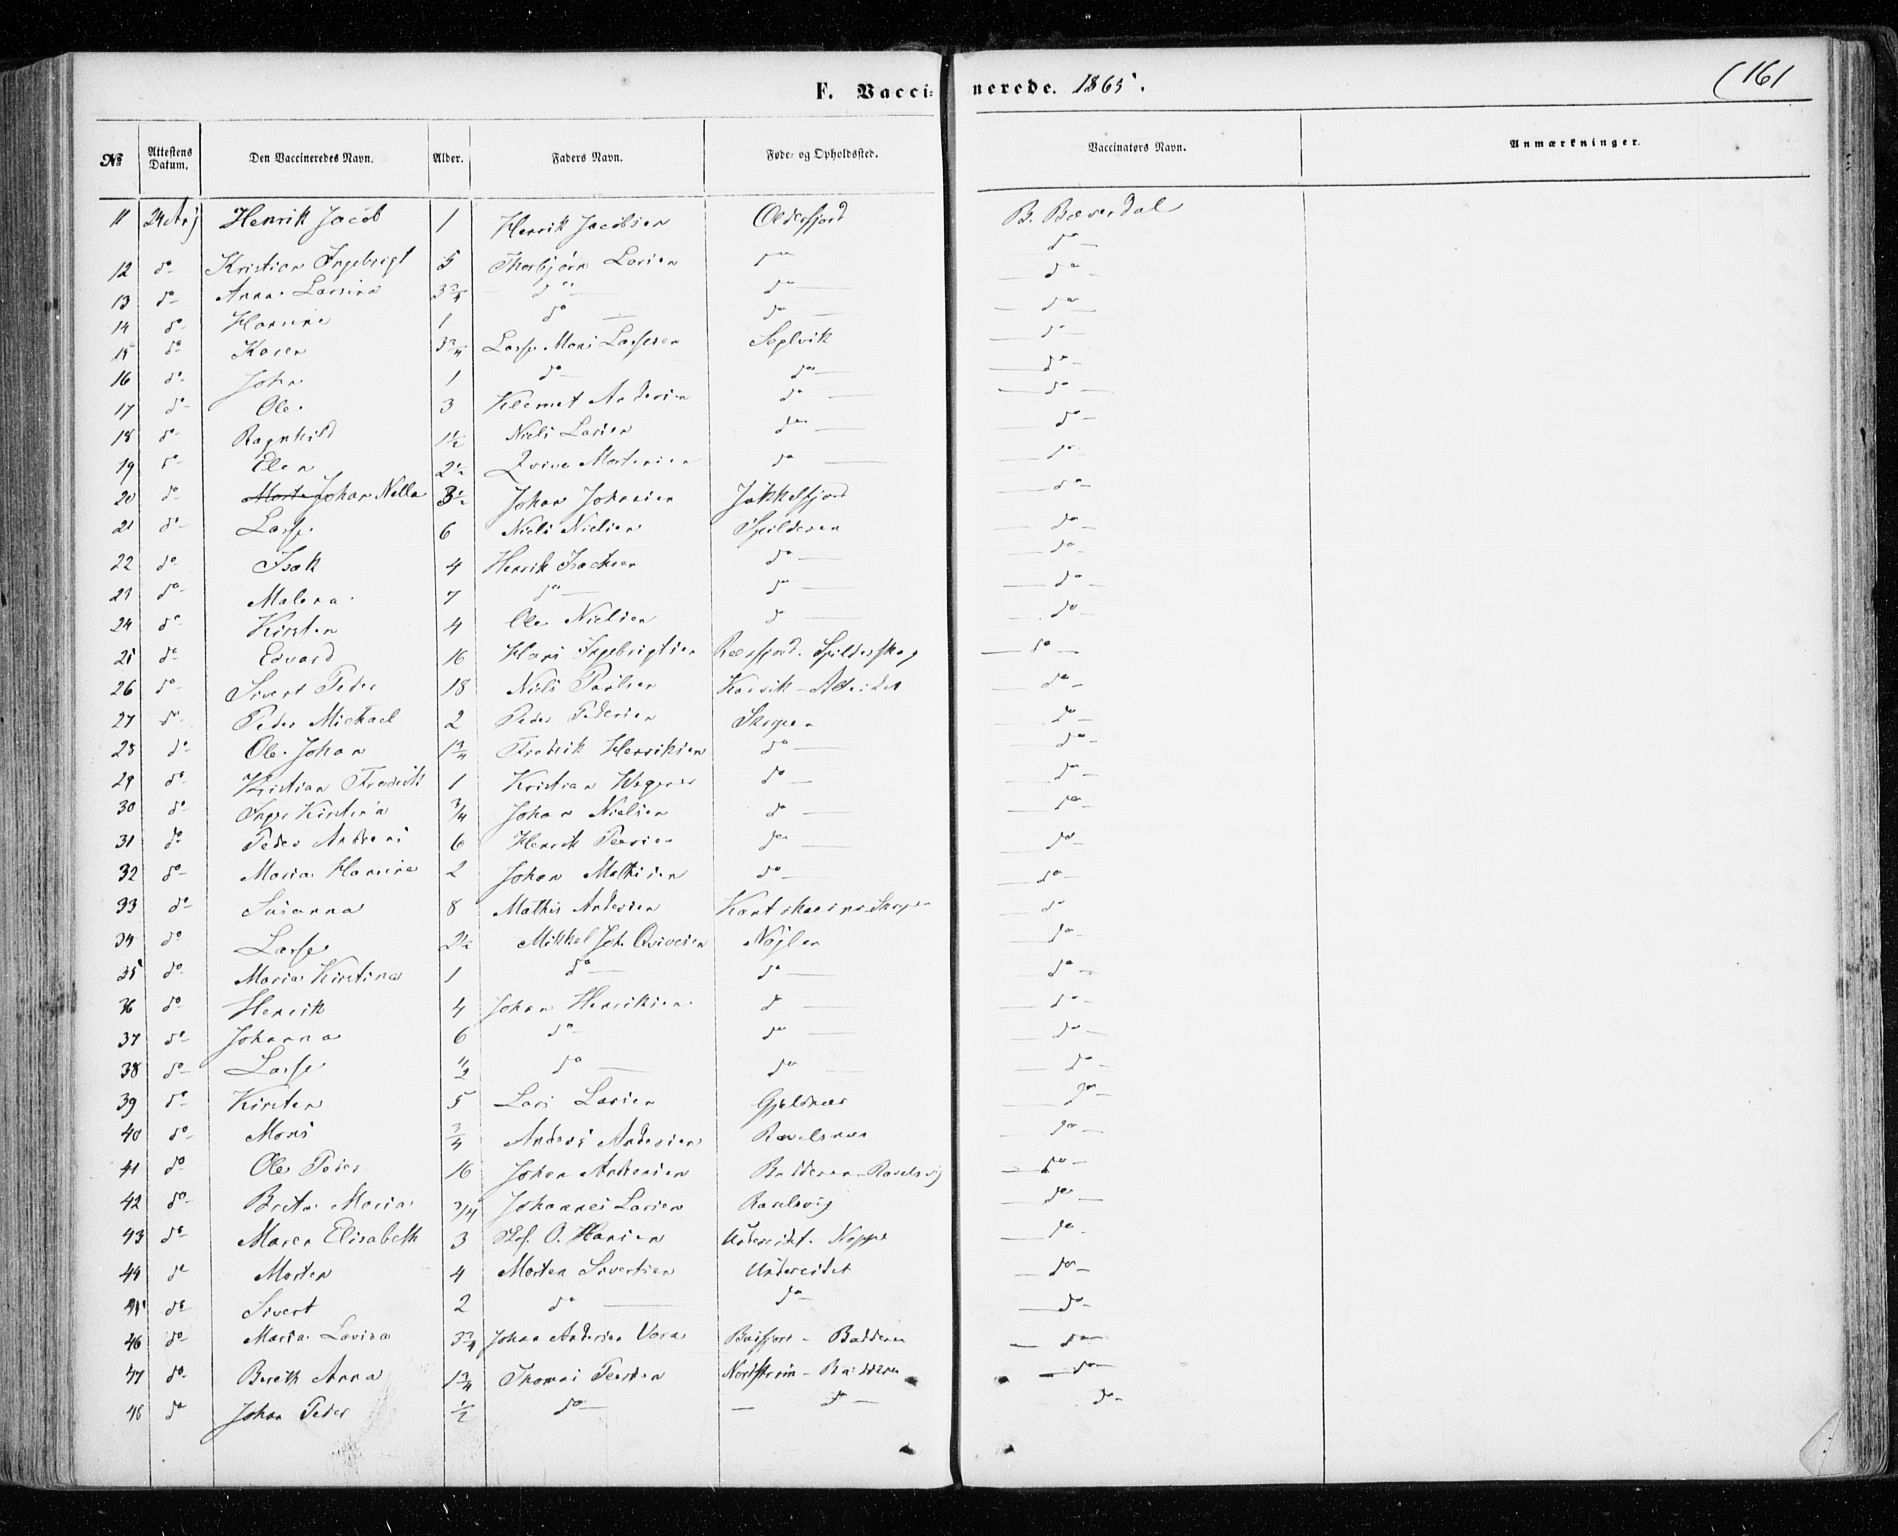 F. Vaccinerede. 1865. (161
№ Attestens Datum. Den Vaccineredes Navn. Alder. Faders Navn. Føde- og Opholdssted. Vaccinatørs Navn. Anmærkninger.
11 24 Henrik Jacob 1 Henrik Jacobsen Olderfjord B. Bæverdal
12 do Kristian Ingebrigt 5 Thorbjørn Larsen do do
13 do Anna Larsina 3 3/4 do do do
14 do Hansine 1 do do do
15 do Karen 3 3/4 Lars Mons Larssen Seglvik do
16 do John 1 do do do
17 do Ole 3 Klemet Andersen do do
18 do Ragnhild 1 1/2 Niels Larsen do do
19 do Elen 2 1/2 Qvive Mortensen do do
20 do Johan Nella 3 1/2 Johan Johnsen Jøkkelfjord do
21 do Lars 6 Niels Nielsen Spilderen do
22 do Isak 4 Henrik Isachsen do do
23 do Malena 7 do do do
24 do Kirsten 4 Ole Nielsen do do
25 do Edvard 16 Hans Ingebrigtsen Spilderskog do
26 do Sivert Peder 18 Niels Paulsen Karvik - Alteidet do
27 do Peder Michael 2 Peder Pedersen Skorpen do
28 do Ole Johan 1 3/4 Fredrik Henriksen do do
29 do Kristian Fredrik 1 Kristian Wegener do do
30 do Inger Kirstina 3/4 Johan Nielsen do do
31 do Peder Anders 6 Henrik Persen do do
32 do Maria Hansine 2 Johan Mathisen do do
33 do Susanna 8 Mathis Andersen Kautokeino Skorpen do
34 do Lars 2 1/2 Mikkel Joh. Qvivesen Nøglen do
35 do Maria Kirstina 1 do do do
36 do Henrik 4 Johan Henriksen do do
37 do Johanna 6 do do do
38 do Lars 1/2 do do do
39 do Kirsten 5 Lars Larsen Gjeldnæs do
40 do Mons 3/4 Anders Andersen Ravelsnæs do
41 do Ole Peder 16 Johan Andersen Badderen - Ravelsvig do
42 do Brita Maria 3/4 Johannes Larsen Ravelsvig do
43 do Maren Elisabeth 3 O. Hansen Undereidet. Noppe do
44 do Morten 4 Morten Sivertsen Undereidet do
45 do Sivert 2 do do do
46 do Maria Lovisa 3 3/4 Johan Andersen Vara Badderen do
47 do Bereth Anna 1 3/4 Thomas Persen Nordstrøm - Badderen do
48 do Johan Peder 1/2 do do do